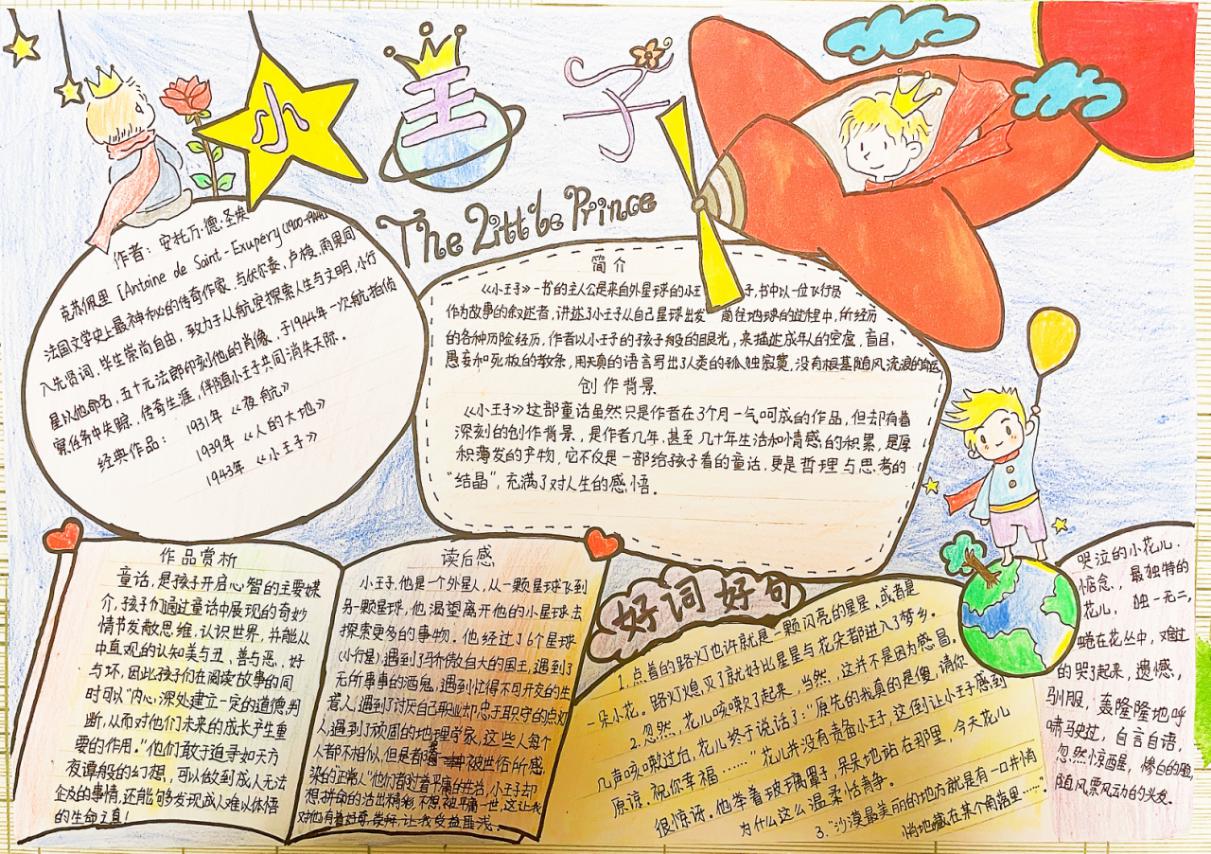 小王子
The Little Prince
作者：安托万·德·圣埃
克苏佩里［Antoine de Saint-Exupery(1900-1944)
法国文学史上最神秘的传奇作家，与伏尔泰、卢梭、雨果同
入先贤词，毕生崇尚自由，致力于从航空探索人生与文明，小行
星以他命名，五十元法郎印刻他的肖像，于1944年一次航拍侦
察任务中失踪，传奇生涯，伴随小王子共同消失天际。
经典作品： 1931年 《夜航》
1939年 《人的大地》
1943年 《小王子》
简介
《小王子》一书的主人公是来自外星球的小王子，书中以一位飞行员
作为故事的叙述者，讲述了小王子从自己星球出发 前往地球的过程中，所经历
的各种历险经历，作者以小王子的孩子般的眼光，来描述成年人的空虚，盲目，
愚妄和死板的教条，用天真的语言写出了人类的孤独寂寞，没有根基随风流浪的命运
创作背景
《小王子》这部童话虽然只是作者在3个月一气呵成的作品，但却有着
深刻的创作背景，是作者几年，甚至几十年生活和情感的积累，是厚
积薄发的产物，它不仅是一部给孩子看的童话，更是哲理与思考的
“结晶”，充满了对人生的感悟。
作品赏析
童话，是孩子开启心智的主要媒
介，孩子们通过童话中展现的奇妙
情节发散思维，认识世界，并能从
中直观的认知美与丑、善与恶、好
与坏，因此孩子们在阅读故事的同
时可以“内心”深处建立一定的道德判
断，从而对他们未来的成长产生重
要的作用。“他们敢于追寻如天方
夜谭般的幻想，可以做到成人无法
企及的事情，还能够发现成人难以体悟
的生命之真！
读后感
小王子，他是一个外星人，从一颗星球飞到
另一颗星球，他渴望离开他的小星球去
探索更多的事物。他经过了6个星球
(小行星)，遇到了骄傲自大的国王，遇到了
无所事事的酒鬼，遇到忙得不可开交的生
意人，遇到了讨厌自己职业却忠于职守的点灯
人，遇到了顽固的地理学家，这些人每个
人都不相似，但是都是被世俗所感
染的正常人”他们都过着平庸的生活，小王子却
想，拼命的活出精彩，不想被平庸一世，这让我
对他有着好奇，崇拜，让我受益匪浅。
好词好句
1. 点着的路灯也许就是一颗闪亮的星星、或者是
一朵小花。路灯熄灭了就好比星星与花朵都进入了梦乡。
2. 忽然，花儿咳嗽了起来，当然，这并不是因为感冒。
几声咳嗽过后，花儿终于说话了：“原先的我真的是傻，请你
原谅。祝你幸福……”花儿并没有责备小王子，这倒让小王子感到
很惊讶。他举着玻璃罩子，呆呆地站在那里，今天花儿
为什么这么温柔恬静。
3. “沙漠最美丽的地方就是有一口井悄
悄地藏在某个角落里……”
哭泣的小花儿，
惦念，最独特的
花儿， 独一无二，
蜷在花丛中，难过
的哭起来，遗憾，
驯服，轰隆隆地呼
啸驶过，自言自语，
忽然惊醒，惨白的脸，
随风飘动的头发。